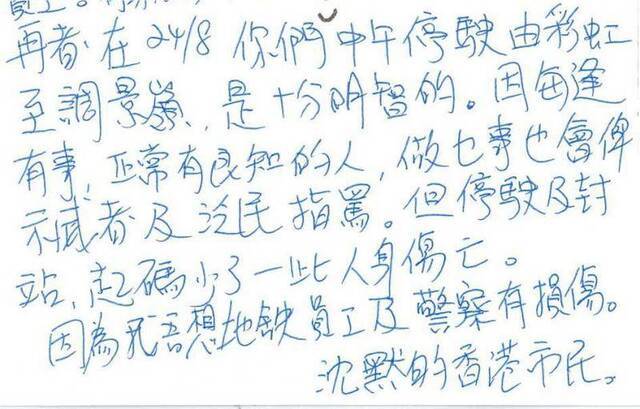 再者,在24/8 你們中午停駛由彩虹
至調景嶺,是十分明智的。因每逢
有事,正常有良知的人,做乜事也會俾
示威者及泛民指罵。但停駛及封
站,起碼少了一些人身傷亡。
因為我唔想地鉄員工及警察有損傷。
沈默的香港市民。